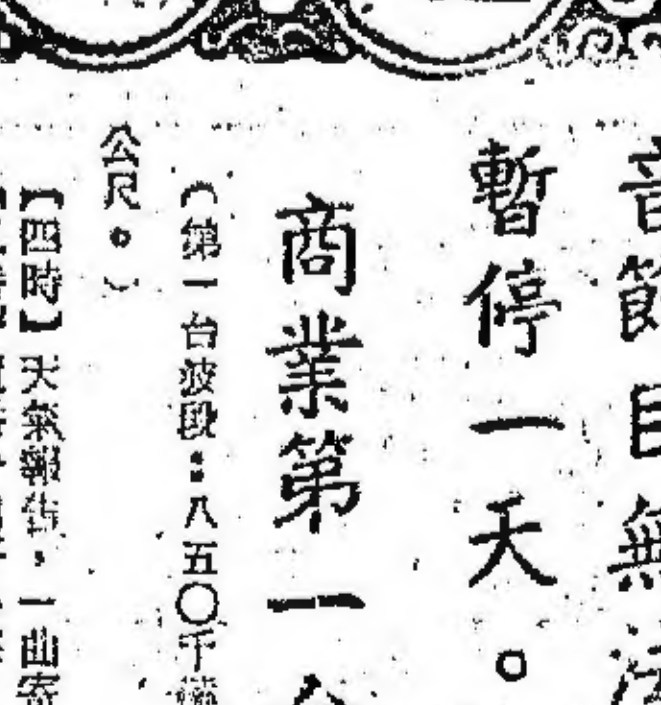 音節目無法
暫停一天。
商業第一台
（第一台波段：八五〇千
公尺。）
【四時】天氣報告，一曲寄